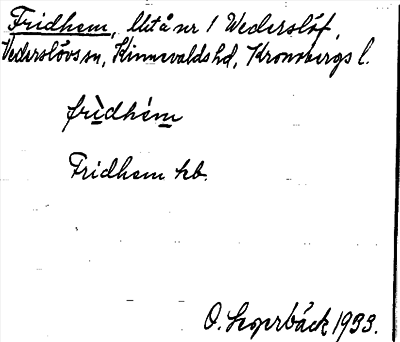 Fridhem, litt å nr 1 Wederslöf,
Vederslövs sn, Kinnevalds hd, Kronobergs l.
frìdhém
Fridhem kb.
O. Sagerbäck 1933.